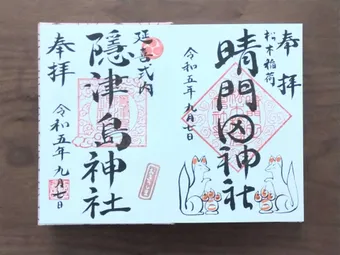 奉拝
松木稲荷
晴門田神社
令和五年九月七日
奉拝
延喜式内
隠津島神社
令和五年九月七日